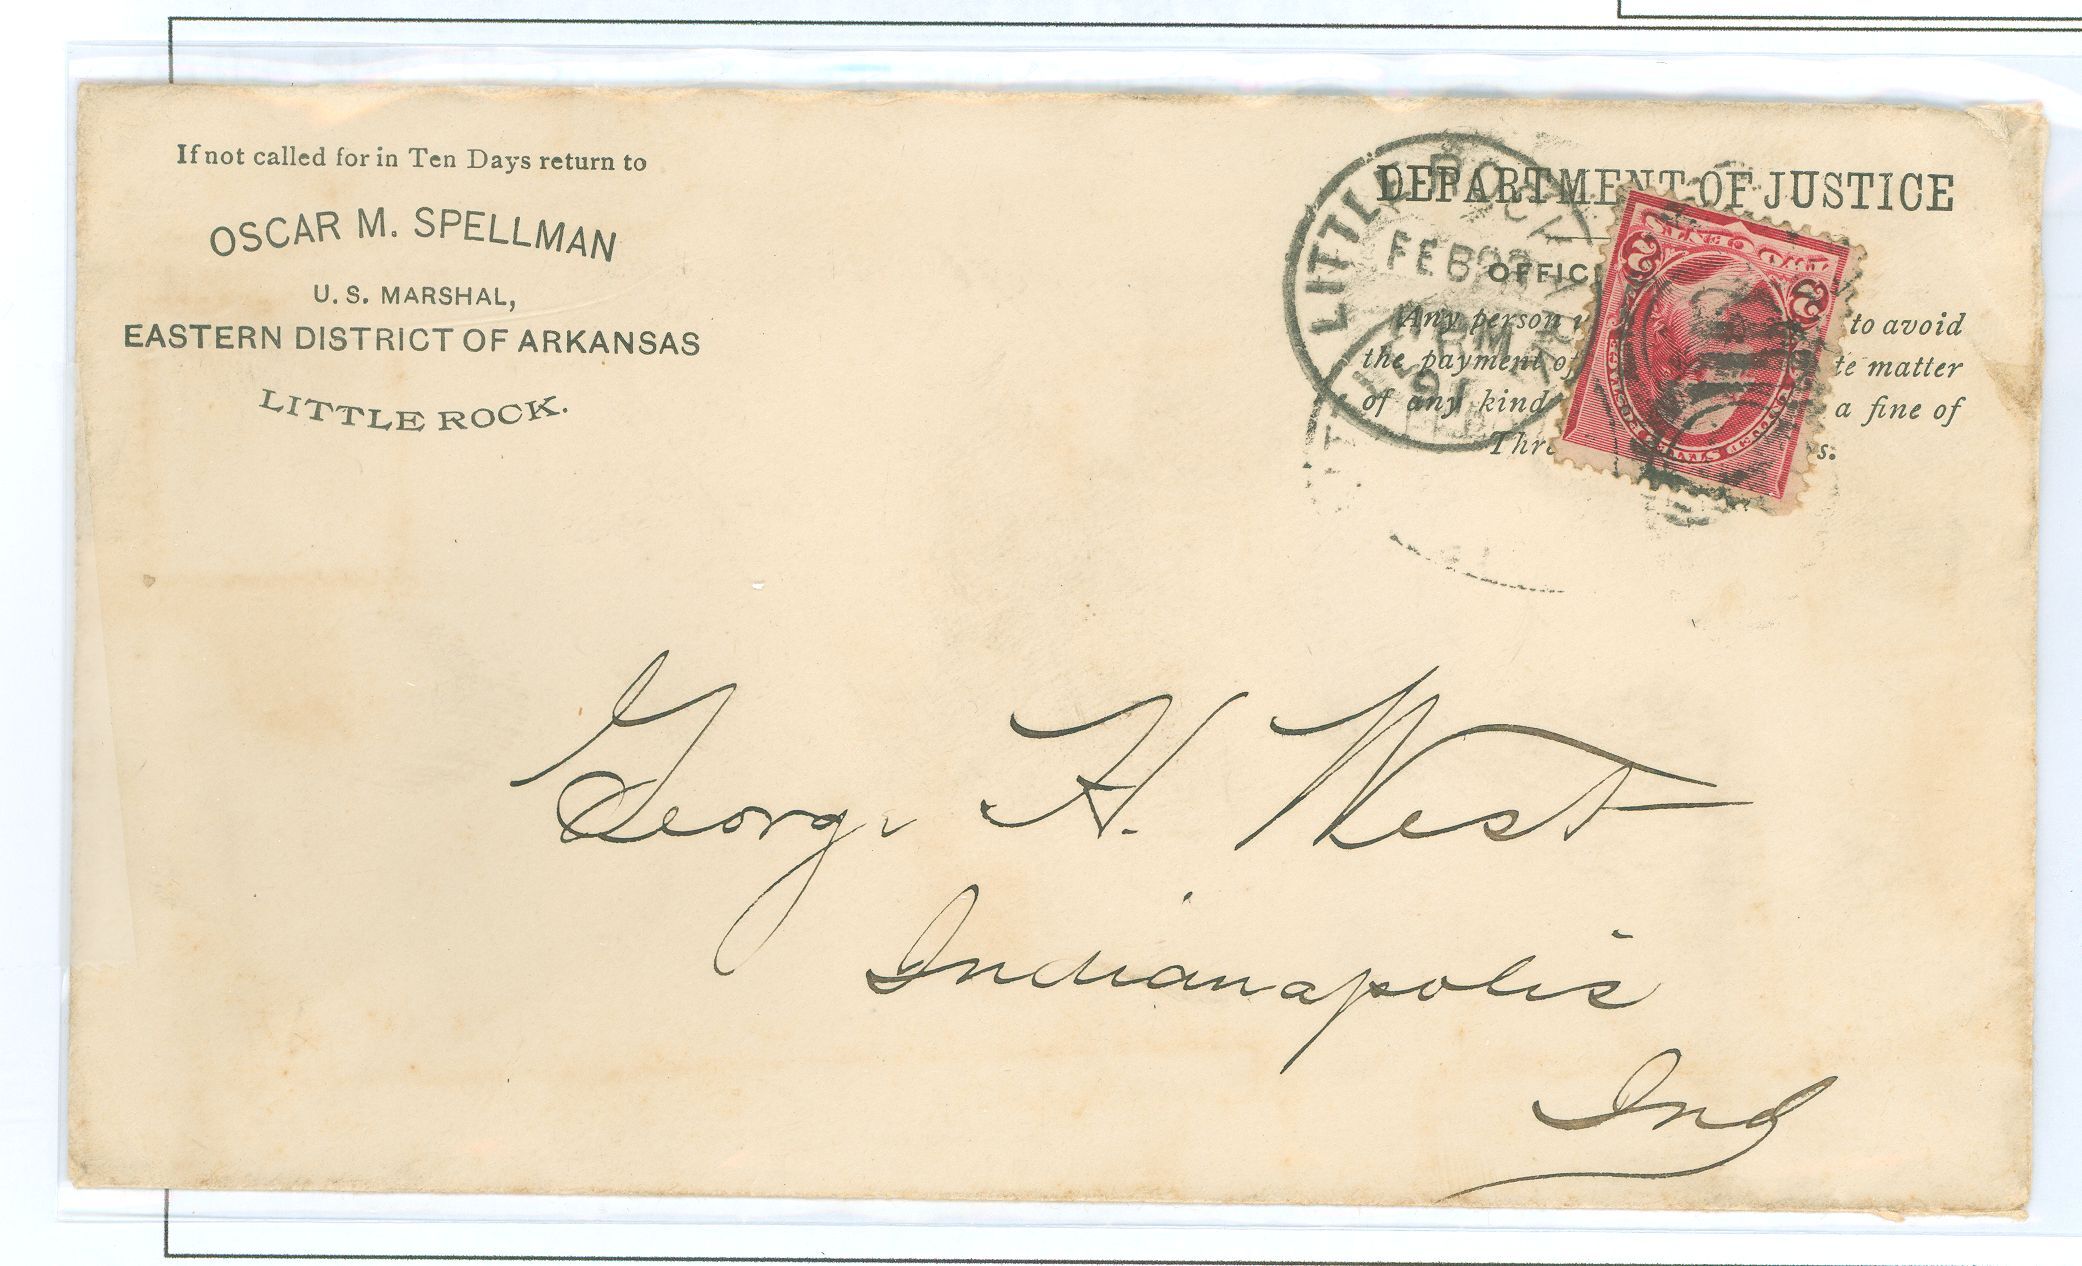 If not called for in Ten Days return to
OSCAR M. SPELLMAN
U. S. MARSHAL,
EASTERN DISTRICT OF ARKANSAS
LITTLE ROCK.
DEPARTMENT OF JUSTICE
Any person to avoid
the payment of matter
of any kind a fine of
LITTLE ROCK
FEB
91
2 2
George H. West
Indianapolis
Ind